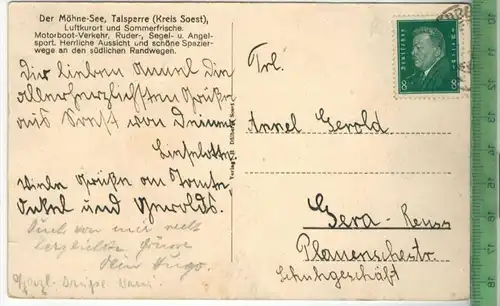 Der Möhne-See, Talsperre (Kreis Soest),
Luftkurort und Sommerfrische.
Motorboot-Verkehr, Ruder-, Segel- u. Angel-
sport. Herrliche Aussicht und schöne Spazier-
wege an den südlichen Randwegen.
Dir lieben Annel die
allerherzlichsten Grüße
aus Soest von Deinem
Lieselotte
Viele Grüße an Tante
Onkel und Gerolds.
Auch von mir recht
herzliche Grüsse
Dein Hugo.
Herzl. Grüße
Verlag
Soest
Deutsches Reich
8 8
Frl.
Annel Gerold
Gera-Reuss
Plauenschestr.
Schuhgeschäft